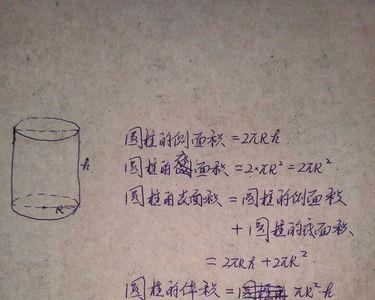 圆柱的侧面积=2πRh.
圆柱的底面积=2·πR²=2πR².
h
圆柱的表面积=圆柱的侧面积
R
+圆柱的底面积
=2πRh+2πR².
圆柱的体积=πR²·h